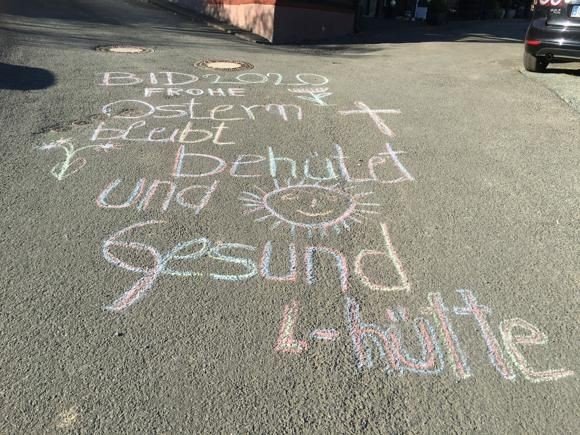 BID2020
FROHE
Ostern
bleibt
behütet
und
Gesund
L-hütte